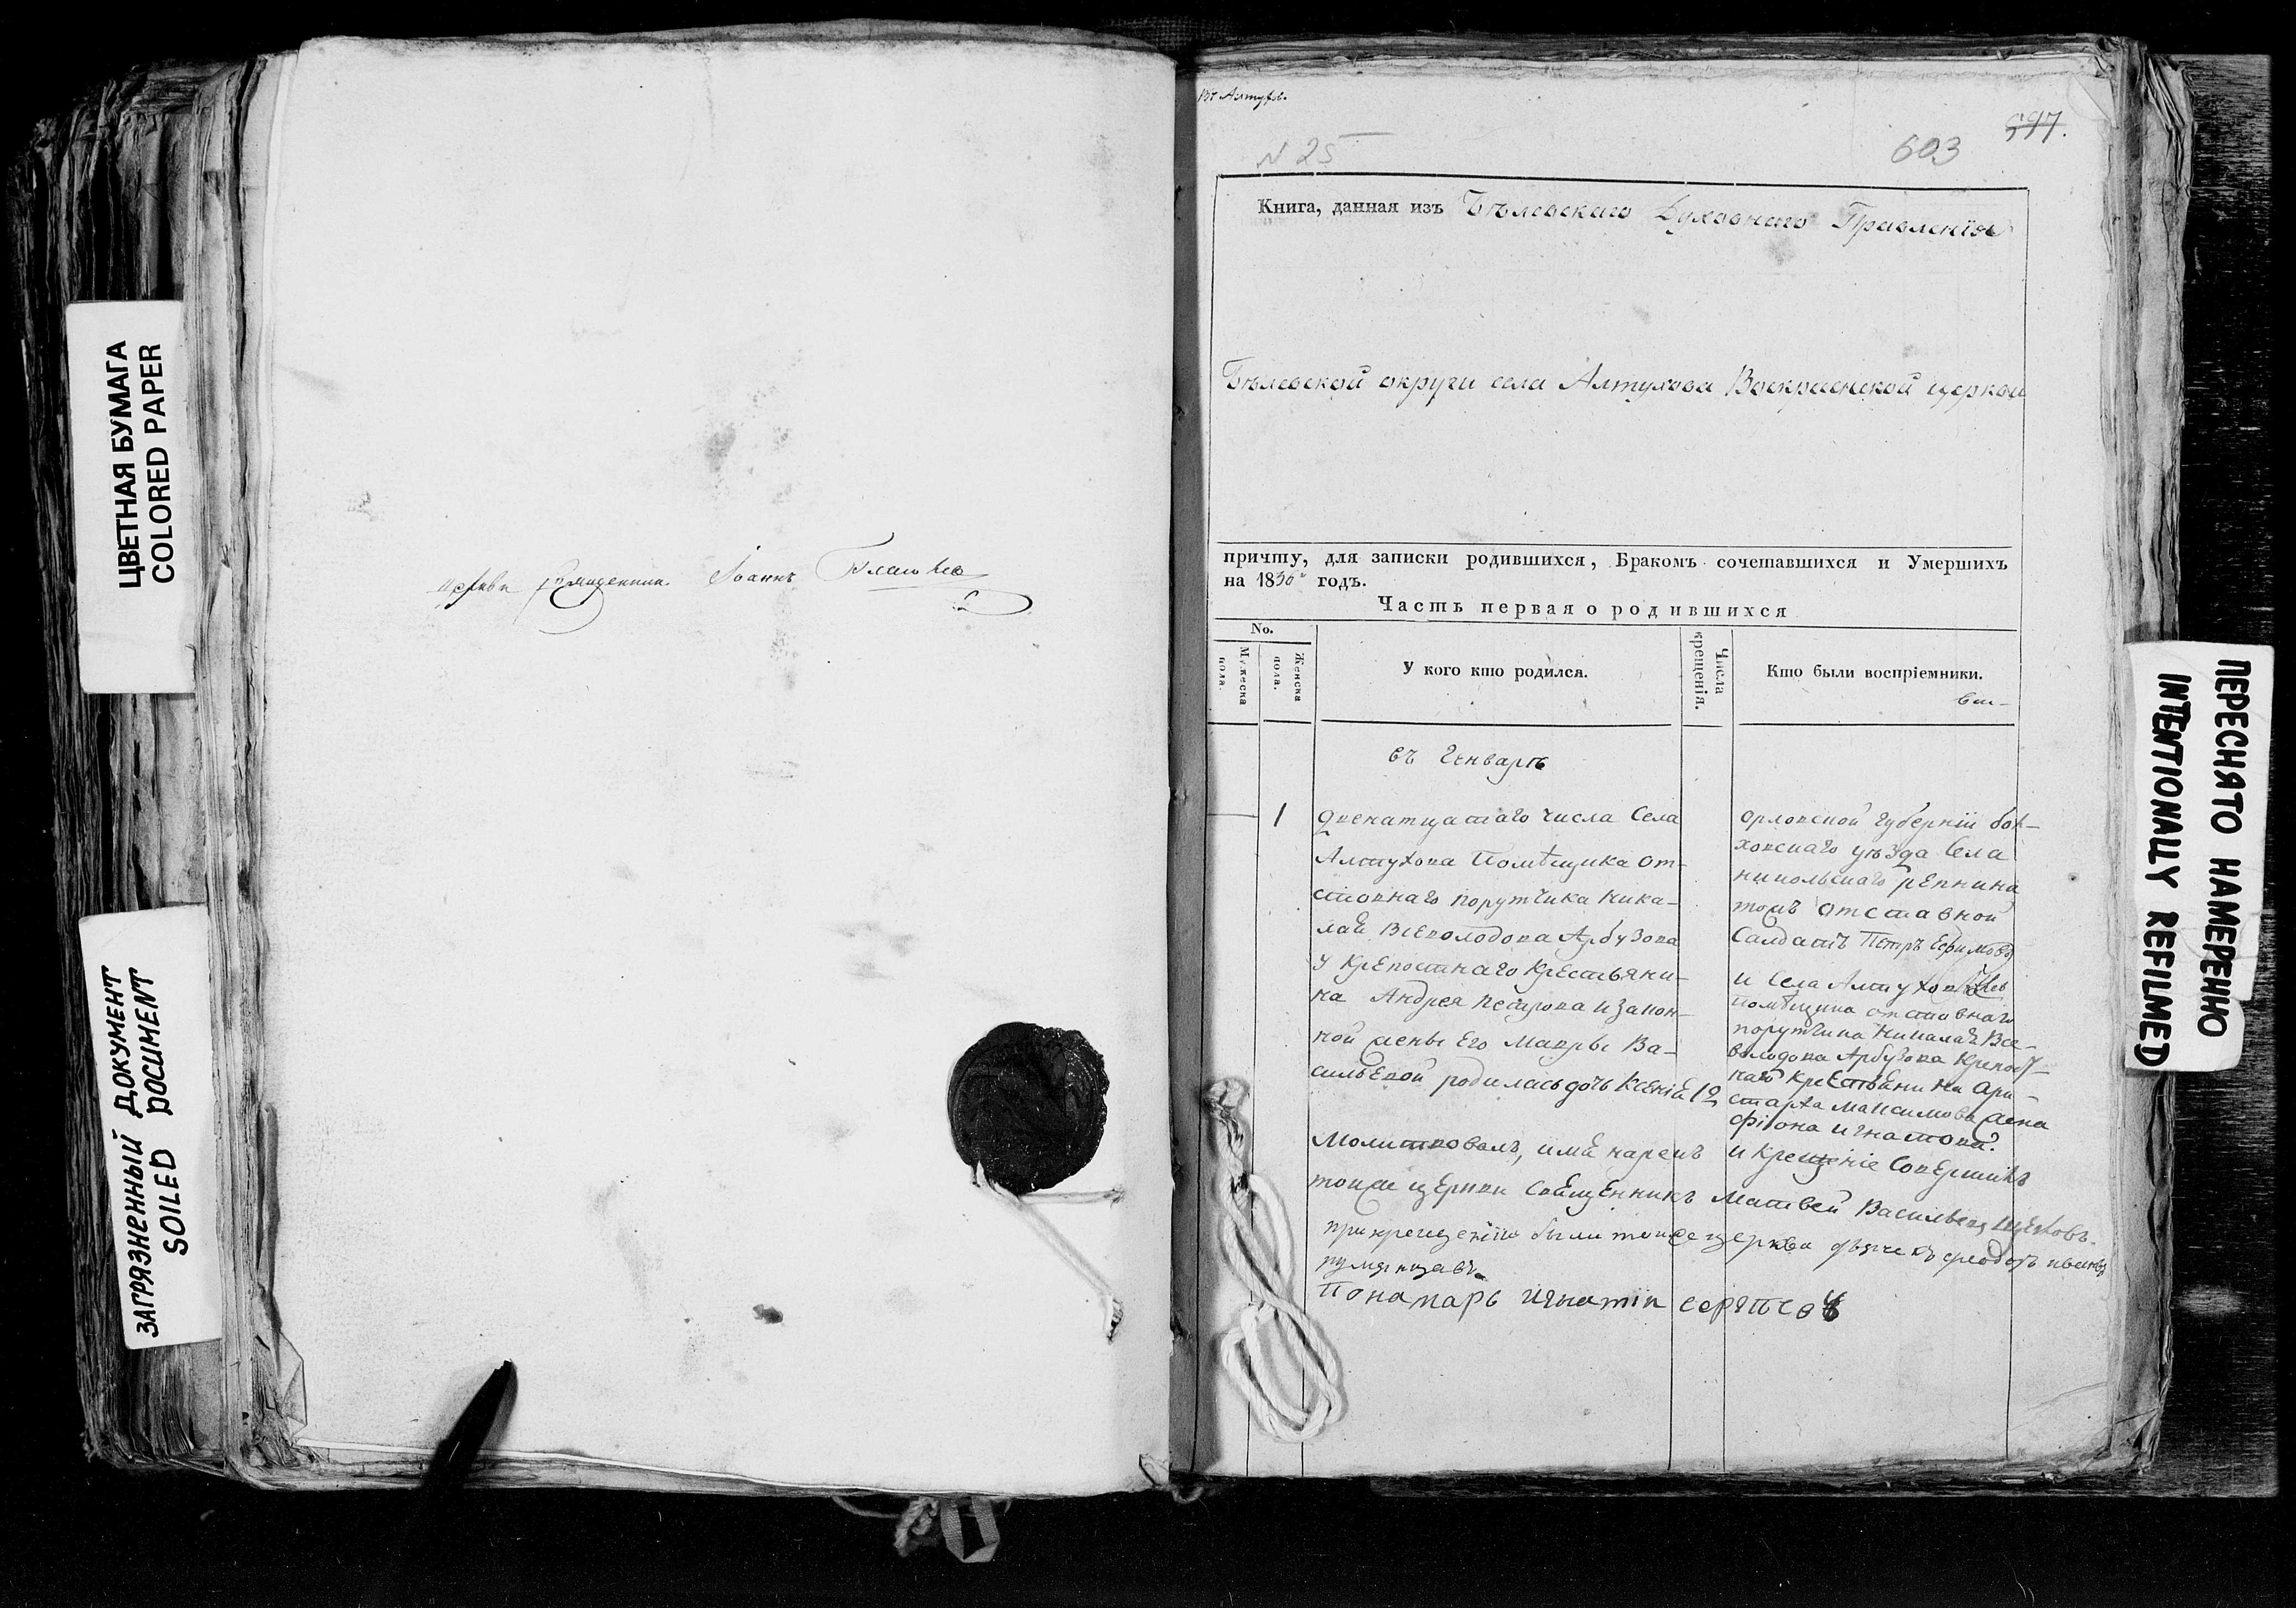 ЦВЕТНАЯ БУМАГА
COLORED PAPER
ЗАГРЯЗНЕННЫЙ ДОКУМЕНТ
SOILED DOCUMENT
Іоаннъ
Алтухов.
N 25
603
597.
Книга, данная изъ Бѣлевскаго Духовнаго Правленія
Бѣлевской округи села Алтухова Воскресенской церкви
причту, для записки родившихся, Бракомъ сочетавшихся и Умершихъ
на 1830 годъ.
Часть первая о родившихся
No.
Мужеска пола.
Женска пола.
У кого кто родился.
Числа крещенія.
Кто были воспріемники.
въ Генварѣ
1
двенатцатаго числа Села
Алтухова Помѣщика от-
ставнаго порутчика Ника-
лая Всеволодова Арбузова
у крепостнаго крестьяни-
на Андрея петрова и закон-
ной жены Его Мавры Ва-
сильевой родилась дочь Ксенія
12
орловской губерніи бол-
ховскаго уѣзда Села
никольскаго репнина
тожъ отставной
Салдатъ Петръ Ефимовъ
и Села Алтухова
помѣщика отставнаго
порутчика Николая Все-
володова Арбузова крепост-
наго крестьянина Ари-
старха Максимова жена
игнатова
Молитвовалъ, имя нарекъ и крещеніе Совершилъ
тойже церкви Священникъ Матвей Васильевъ
при крещеніи были тойже церкви дьячекъ федотъ ивановъ
румянцавъ.
Понамарь игнатіи
ПЕРЕСНЯТО НАМЕРЕННО
INTENTIONALLY REFILMED